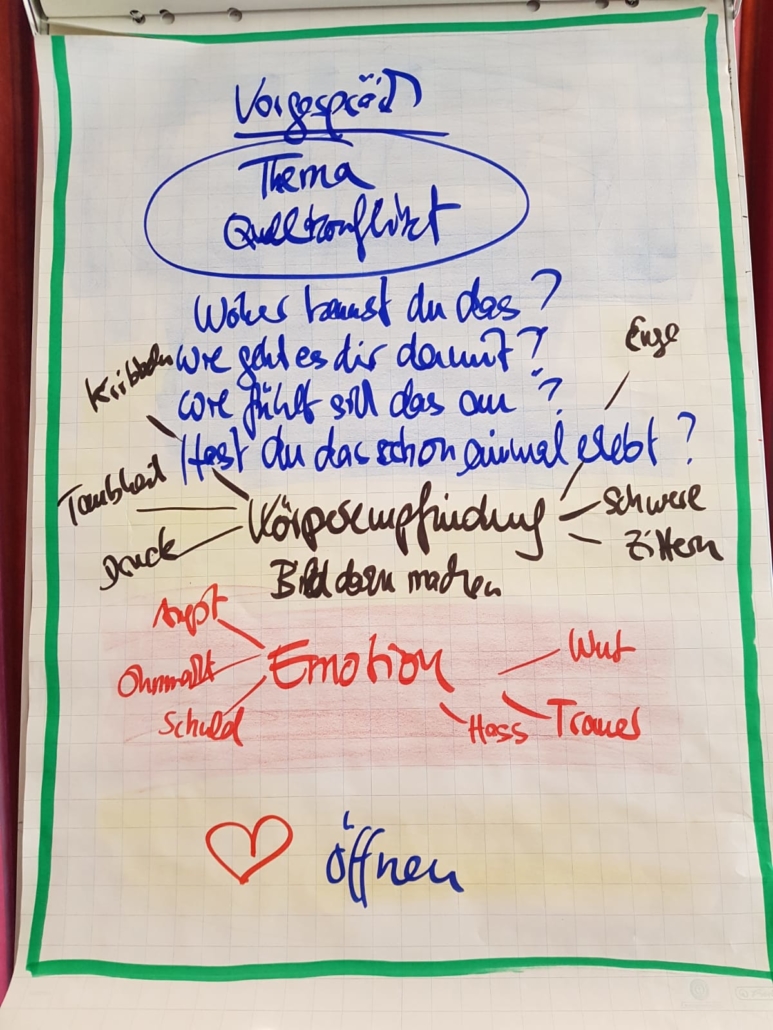 Vorgespräch
Thema
Quellkonflikt
Woher kennst du das?
Enge
Kribbeln
wie geht es dir damit?
wie fühlt sich das an?
Hast du das schon einmal erlebt?
Taubheit
Körperempfindung
Schwere
Druck
Zittern
Bild dazu machen
Angst
Emotion
Wut
Ohnmacht
Schuld
Hass
Trauer
öffnen